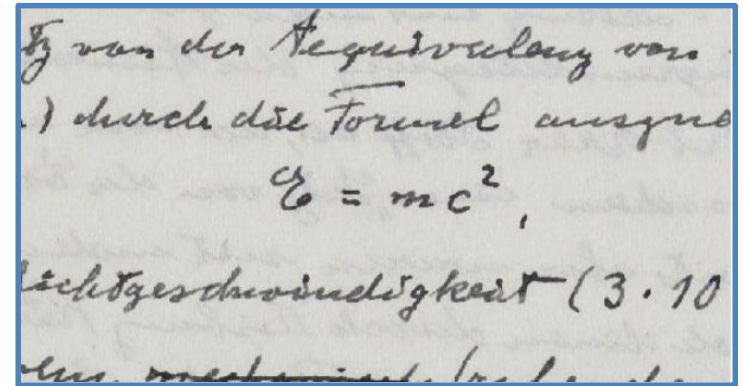 tz von der Aequivalenz von
.) durch die Formel ausged
E = mc²,
Lichtgeschwindigkeit (3.10